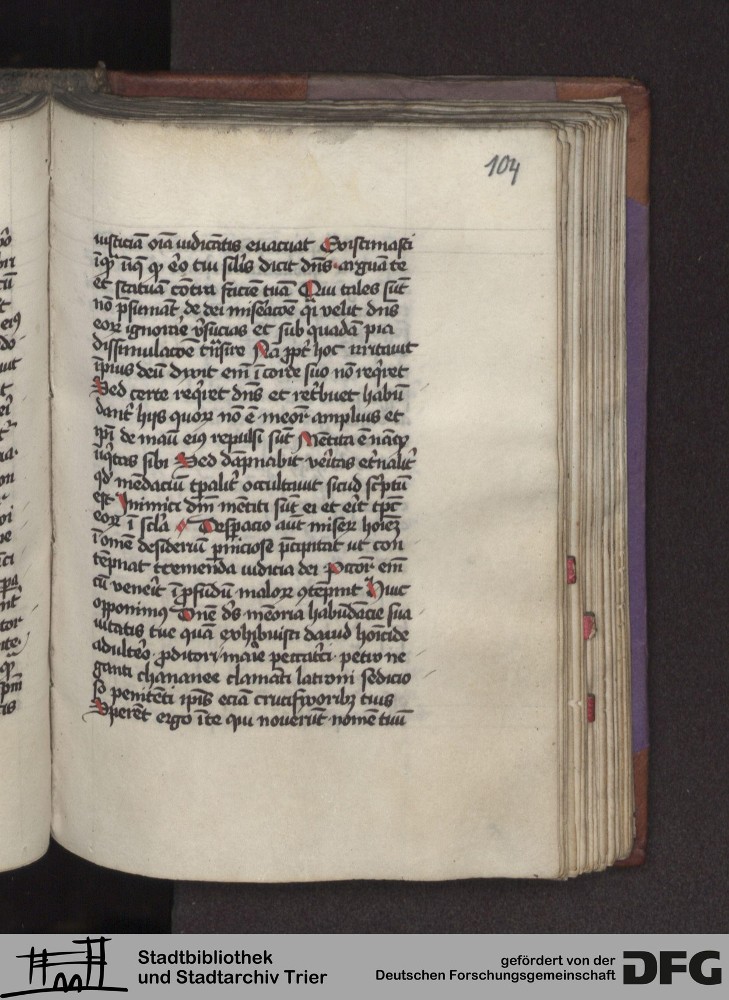 104
iusticiā oīa iudicātis evacuat Existimasti
inīq̄ q̄ ero tui sil̄is dicit dn̄s arguā te
et statuā contra faciē tuā Qui tales sūt
nō p̄sumāt de dei miseracōe q̄i velit dn̄s
eoꝝ ignorāre v̄sucias et sub quadā pia
dissimulacōe trāsire Nā ꝓpt̄ hoc irritauit
īpius deū dixit em̄ ī corde suo nō req̄ret
Sed certe req̄ret dn̄s et ret̄buet habū
dant̄ hijs quoꝝ nō ē meoꝝ amplius et
ip̄i de manū eiꝰ repulsi sūt Mētita ē nāqꝫ
iniq̄tas sibi Sed dāpnabit v̄itas et̄nalit̄
qd̄ mēdaciū tp̄alit̄ occultauit sicud sc̄ptū
est Inimici dn̄i mētiti sūt ei et erit tp̄s
eoꝝ ī sc̄la Desperacio aūt miseꝝ hoīeꝫ
ī om̄e desideriū p̄niciose p̄cipitat ut con
tēpnat tremenda iudicia dei Pccor̄ em̄
cū ven̄it ī ꝓfūdū maloꝝ ꝯtēpnit Huic
opponimus Dn̄e ds̄ mēoria habūdācie sua
uitatis tue quā exhibuisti dauid homicide
adult̄o ꝓditori mar̄ie peccat̄ci petro ne
ganti chananee clamāti latroni sedicio
so peniteti ip̄is eciā crucifixoribꝫ tuis
Sperēt ergo ī te qui nouerūt nomē tuū
Stadtbibliothek
und Stadtarchiv Trier
gefördert von der
Deutschen Forschungsgemeinschaft
DFG